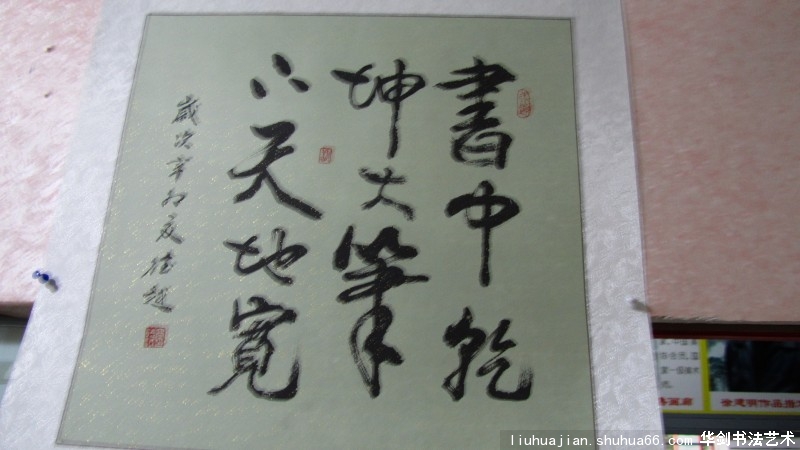 書中乾
坤大筆
下天地寬
歲次辛卯夏德越
liuhuajian.shuhua66.com 华剑书法艺术